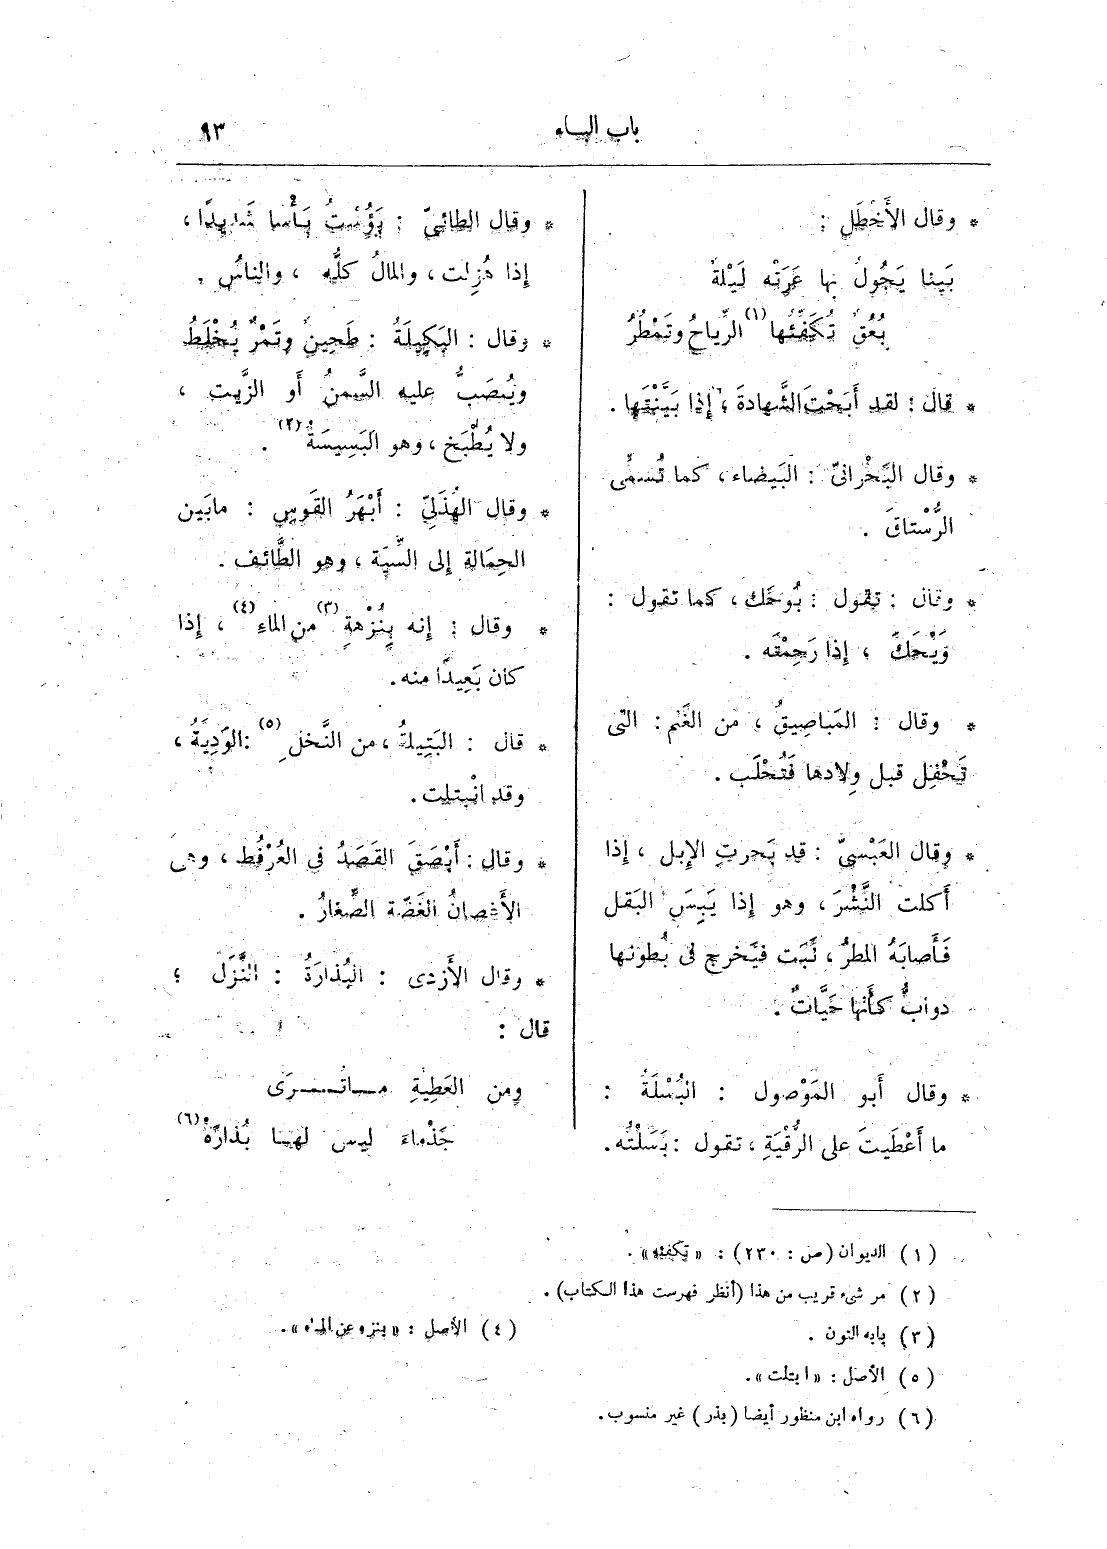 باب الباء
٩٣
* وقال الأَخْطَلِ :
بَينا يَجُولُ بها عَرَتْه لَيْلةٌ
بُعُقٌ تُكَفِّئُها(١) الرِّياحُ وتَمْطُرُ
* قال : لقد أَبَحْتَ الشَّهادةَ ، إذا بَيَّنْتَها .
* وقال البَحْرانىّ : البَيضاء ، كما تُسمَّى
الرُّسْتاقَ .
* وقال : تقول : بُوحَك ، كما تقول :
وَيْحَكَ ، إذا رَحِمْتَه .
* وقال : المَباصِيقُ ، من الغَنم : التى
تَحْفِل قبل وِلادها فَتُحْلَب .
* وقال العَبْسىّ : قد بَحِرتِ الإبل ، إذا
أكلت النَّشْرَ ، وهو إذا يَبِسَ البَقل
فَأَصابَهُ المطرُ ، نَبَت فيَخرج فى بُطونها
دوابُّ كأَنها حَيَّاتٌ .
* وقال أَبو المَوْصول : البُسْلَةُ :
ما أَعْطَيتَ على الرُّقْيَةِ ، تقول : بَسَلْتُه.
* وقال الطائىّ : بَؤُسْتُ بَأْسا شَديدًا ،
إذا هُزِلت ، والمالُ كلُّه ، والناسُ .
* وقال : البَكِيلَةُ : طَحِينٌ وتَمْرٌ يُخْلَطُ
ويُصَبُّ عليه السَّمنُ أَو الزَّيت ،
ولا يُطْبَخ ، وهو البَسِيسَةُ(٢) .
* وقال الهُذَلىّ : أَبْهَرُ القَوسِ : مابَين
الحِمَالةِ إلى السِّيَة ، وهو الطَّائف .
* وقال : إنه بِنُزْهةٍ(٣) من الماءِ(٤) ، إذا
كان بَعِيدًا منه.
* قال : البَتِيلةُ ، من النَّخلِ(٥) :الوَدِيَّةُ ،
وقد انْبتلت.
* وقال : أَبْصَقَ القَصَدُ فى العُرْفُط ، وهى
الأَغصانُ الغَضّة الصِّغارُ .
* وقال الأَزدى : البُذارَةُ : النَّزَل ؛
قال :
ومن العَطِيةِ مــاتــــرَى
جَذْماءَ ليس لها بُذارَّهْ(٦)
(١) الديوان (ص : ٢٣٠) : « تكفئه» .
(٢) مر شىء قريب من هذا (أنظر فهرست هذا الكتاب) .
(٣) بابه النون .
(٤) الأصل : « بنزه عن الماء ».
(٥) الأصل : « ابتلت ».
(٦) رواه ابن منظور أيضا (بذر) غير منسوب.